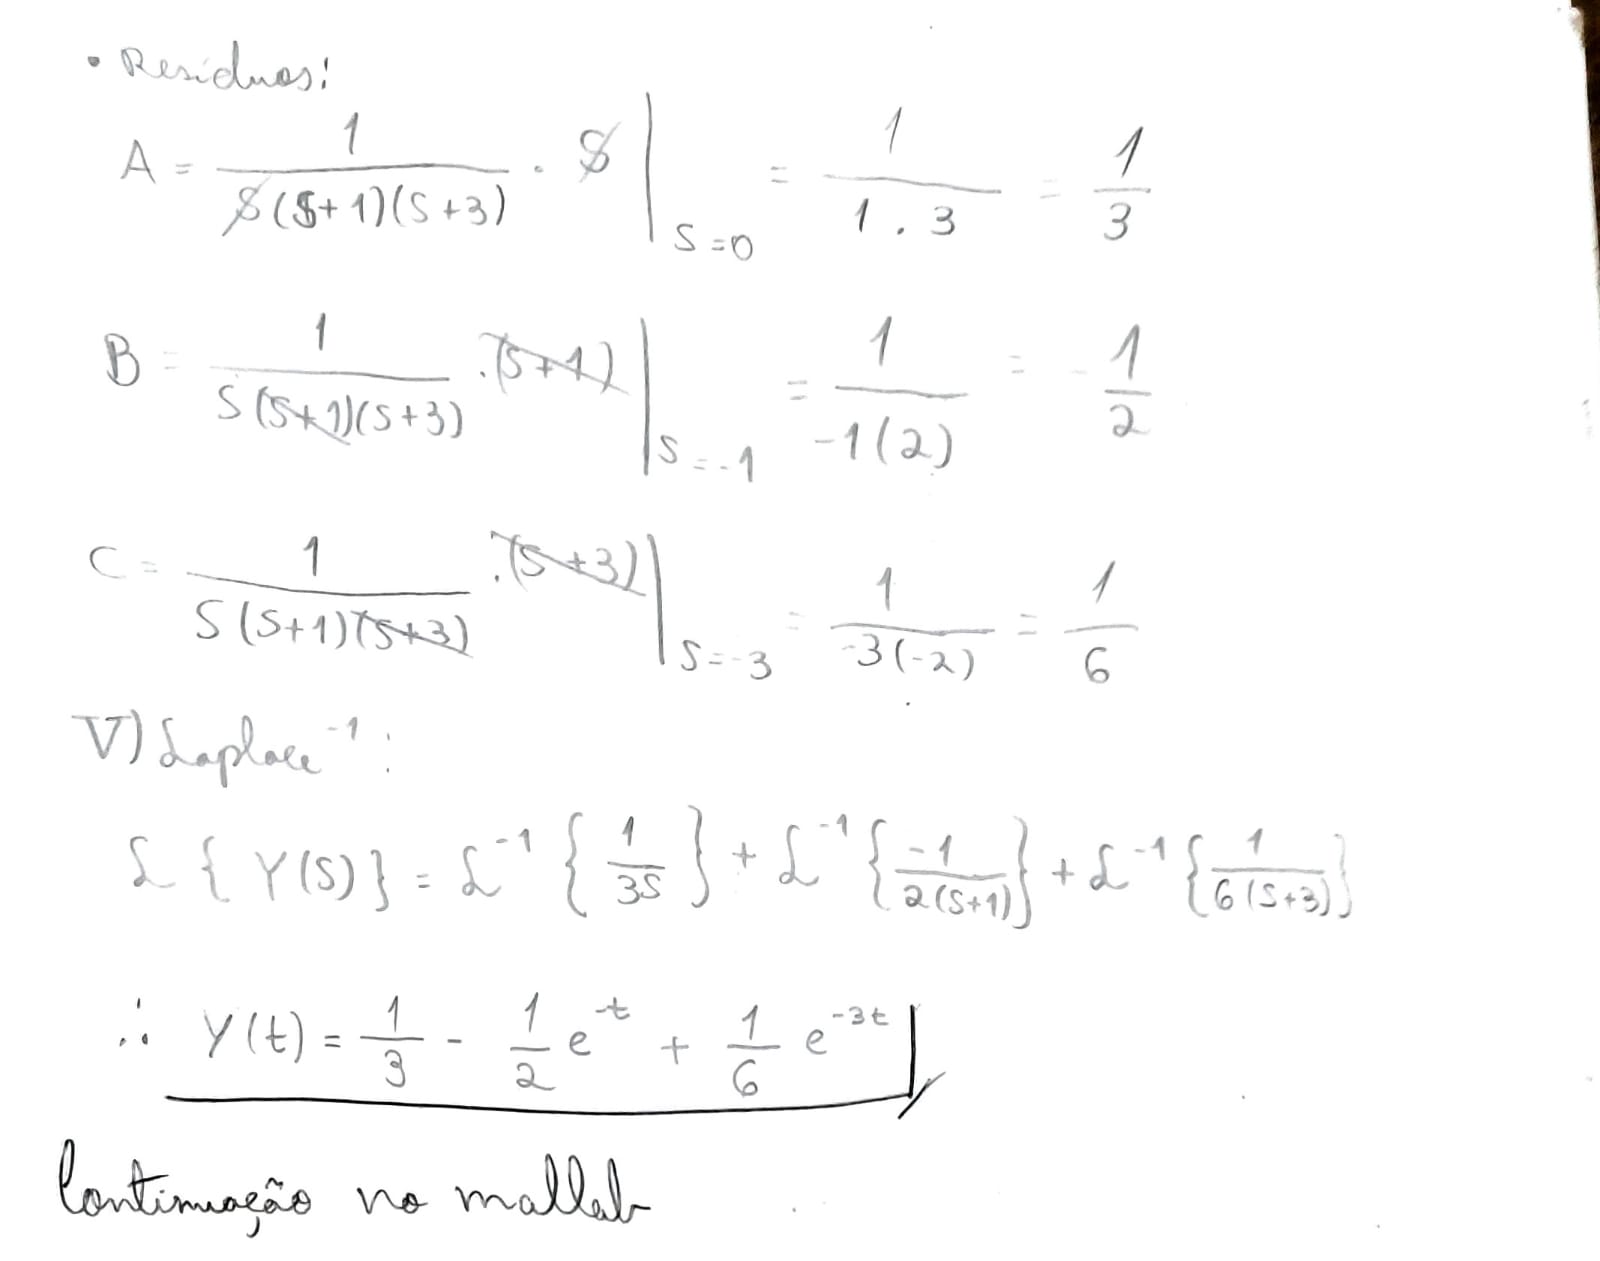 • Resíduos:
A = 1/(S(S+1)(S+3)) . S |S=0 = 1/(1 . 3) = 1/3
B = 1/(S(S+1)(S+3)) . (S+1) |S=-1 = 1/(-1(2)) = -1/2
C = 1/(S(S+1)(S+3)) . (S+3) |S=-3 = 1/(-3(-2)) = 1/6
V) Laplace⁻¹:
ℒ{Y(S)} = ℒ⁻¹{1/(3S)} + ℒ⁻¹{-1/(2(S+1))} + ℒ⁻¹{1/(6(S+3))}
∴ Y(t) = 1/3 - 1/2 e^-t + 1/6 e^-3t
Continuação no matlab